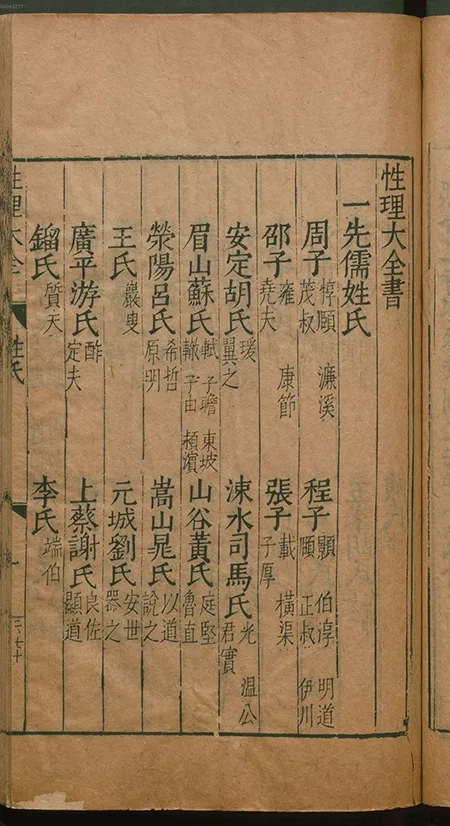 性理大全書
一先儒姓氏
周子 惇頤 茂叔 濂溪 程子 顥 伯淳 明道 頤 正叔 伊川
邵子 雍 堯夫 康節 張子 載 子厚 橫渠
安定胡氏 瑗 翼之 涑水司馬氏 光 君實 温公
眉山蘇氏 軾 子瞻 東坡 轍 子由 穎濵 山谷黃氏 庭堅 魯直
滎陽呂氏 希哲 原明 嵩山晁氏 以道 說之
王氏 巖叟 元城劉氏 安世 器之
廣平游氏 酢 定夫 上蔡謝氏 良佐 顯道
鎦氏 質天 李氏 端伯
性理大全 姓氏 一 三七十